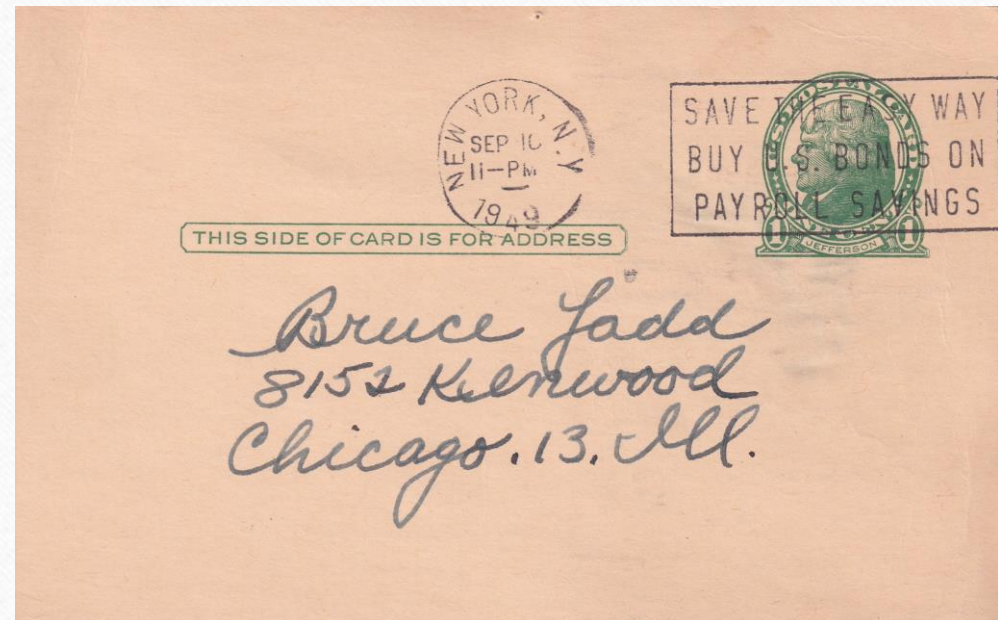 NEW YORK, N.Y
SEP 10
11-PM
1949
SAVE THE EASY WAY
BUY U.S. BONDS ON
PAYROLL SAVINGS
U·S·POSTAL CARD
1 JEFFERSON 1
THIS SIDE OF CARD IS FOR ADDRESS
Bruce Ladd
8152 Kenwood
Chicago. 13. Ill.